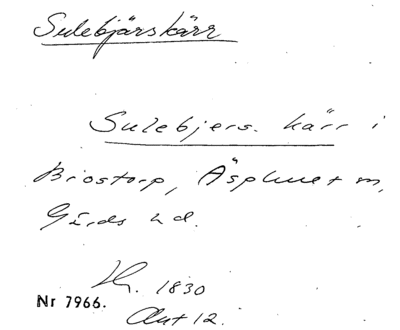 Sulebjärskärr
Sulebjers. kärr i
Brostorp, Äsphult m,
Gärds hd.
1830
Nr 7966.
Akt 12.